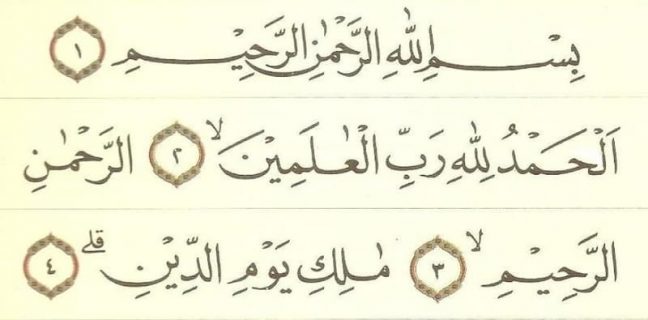 بِسْــــمِ اللّٰهِ الرَّحْمٰنِ الرَّحِيْـــمِ ١
اَلْحَمْدُ لِلّٰهِ رَبِّ الْعٰلَمِيْنَ ۙ ٢ الرَّحْمٰنِ
الرَّحِيْمِ ۙ ٣ مٰلِكِ يَوْمِ الدِّيْنِ ۗ ٤